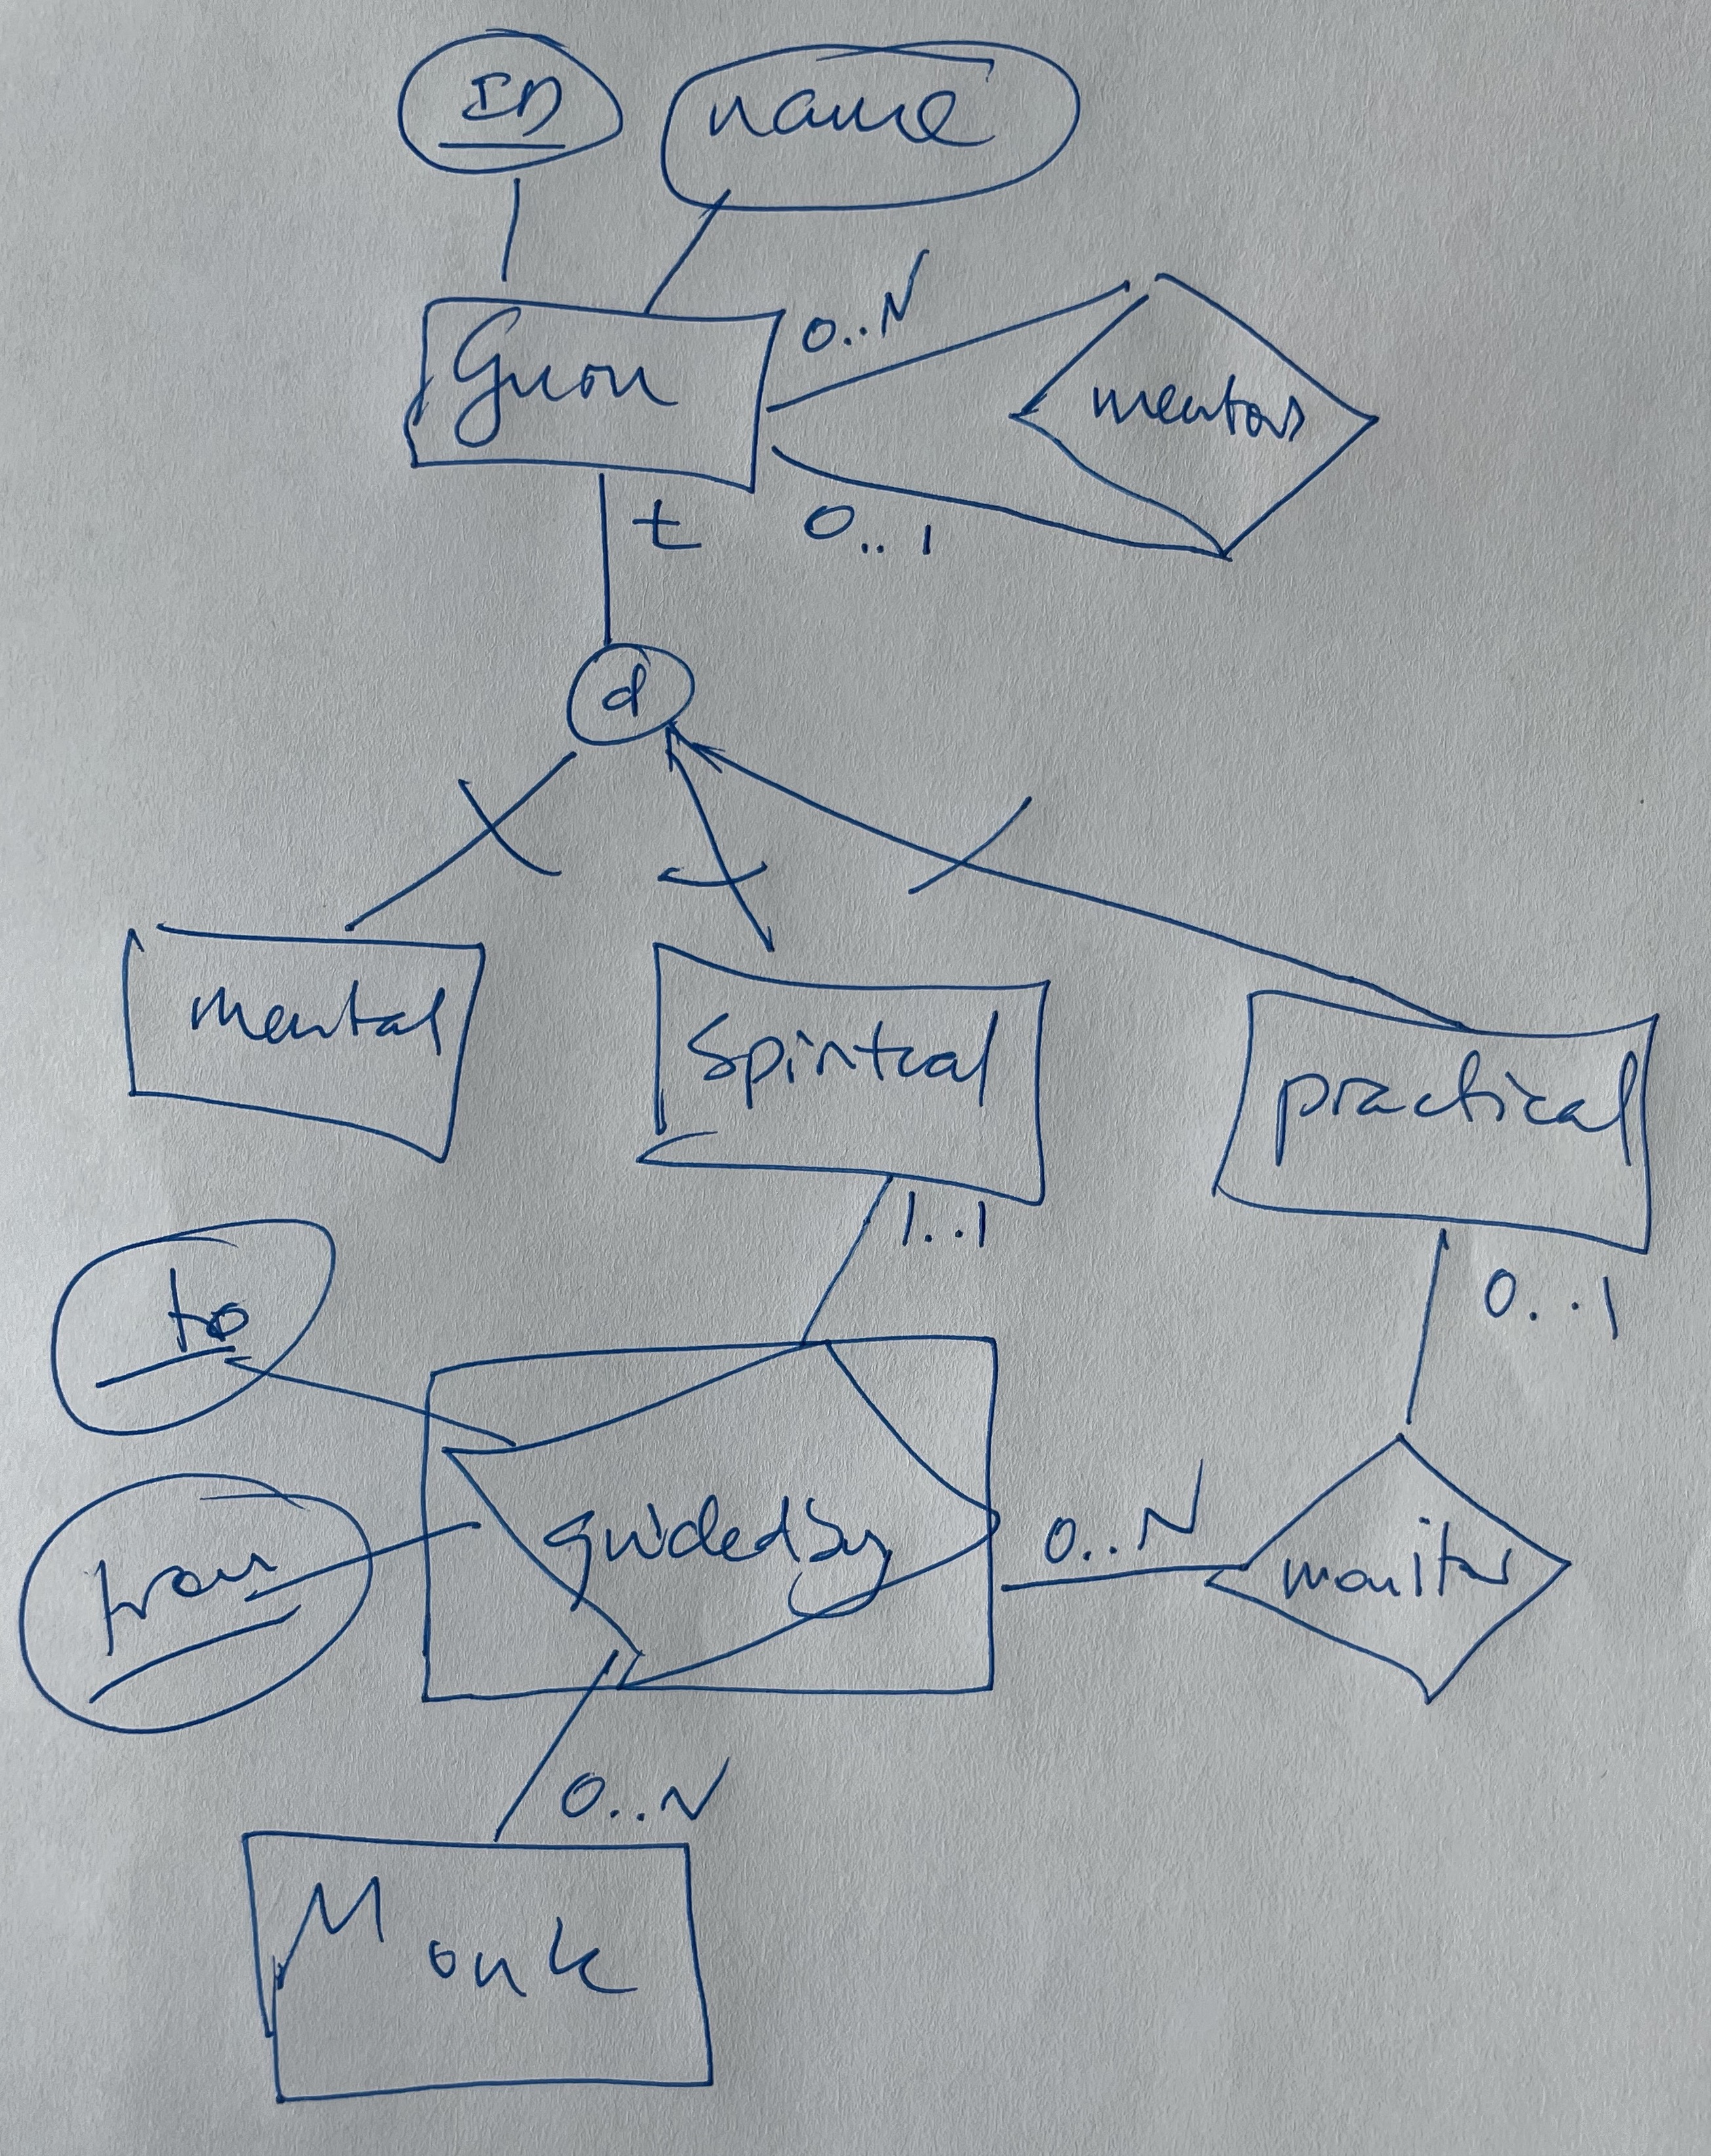 ID
name
Guon
0..N
mentors
t
0..1
d
mental
Spiritual
practical
1..1
to
0..1
guidedby
from
0..N
monitor
0..N
Monk